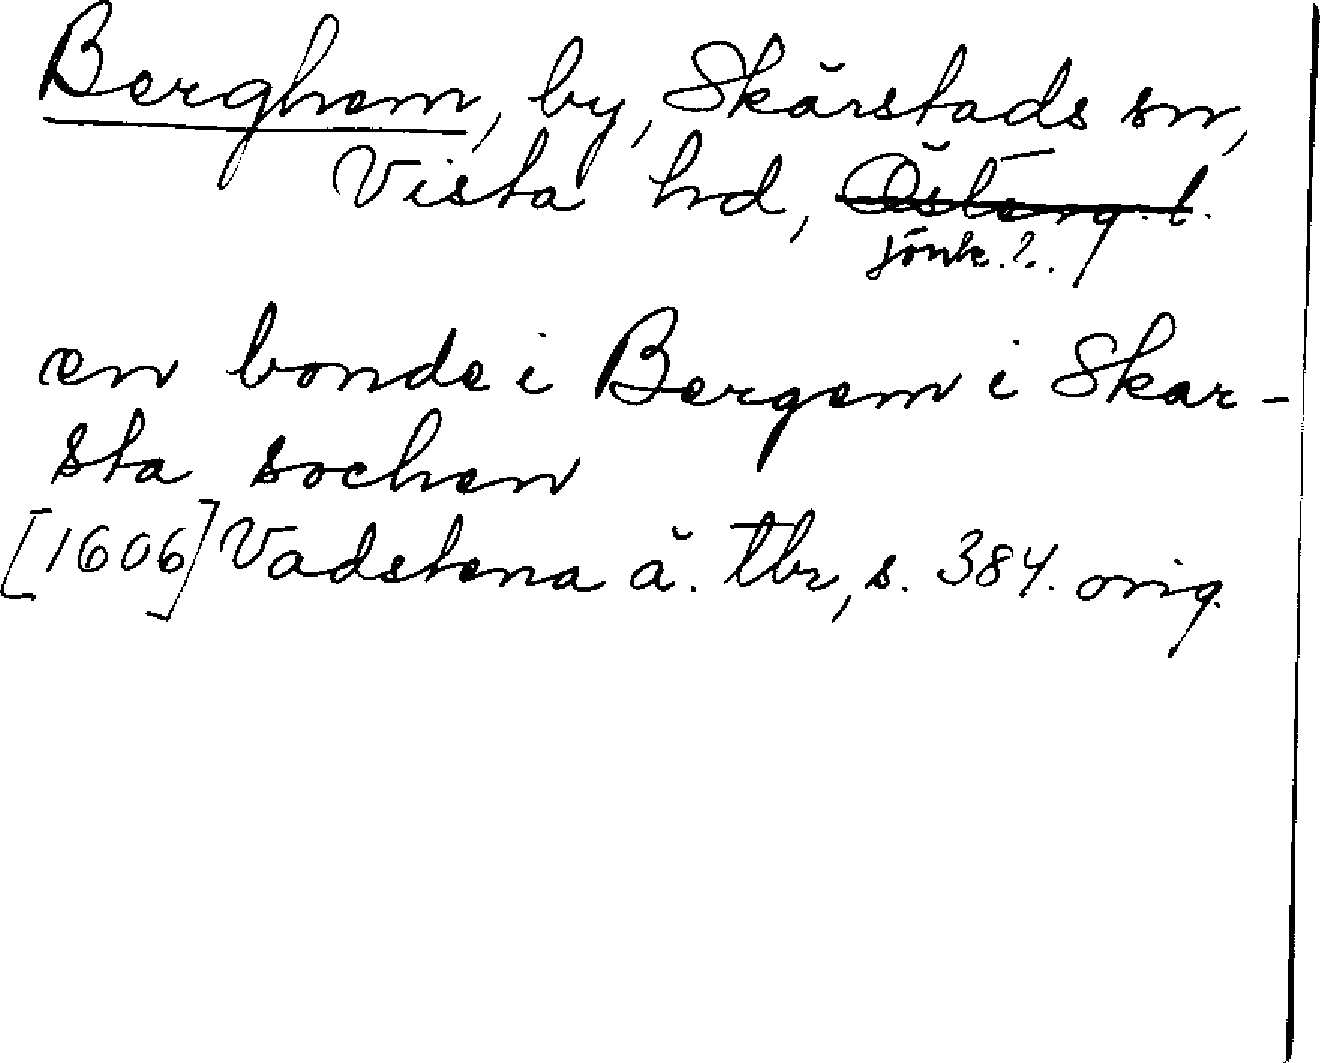 Berghem, by, Skärstads sn,
Vista hd, Österg. l.
Jönk. l.
en bonde i Bergem i Skar-
sta sochen
[1606] Vadstena ä. tbr, s. 384. orig.